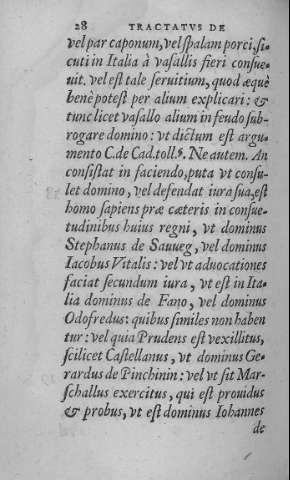 28 TRACTATVS DE
vel par caponum, vel spalam porci, si-
cuti in Italia à vasallis fieri consue-
uit. vel est tale seruitium, quod æquè
benè potest per alium explicari: &
tunc licet vasallo alium in feudo sub-
rogare domino: vt dictum est argu-
mento C. de Cad. toll. §. Ne autem. An
consistat in faciendo, puta vt consu-
let domino, vel defendat iura sua, est
homo sapiens præ cæteris in consue-
tudinibus huius regni, vt dominus
Stephanus de Sauueg, vel dominus
Iacobus Vitalis: vel vt aduocationes
faciat secundum iura, vt est in Ita-
lia dominus de Fano, vel dominus
Odofredus: quibus similes non haben
tur: vel quia Prudens est vexillitus,
scilicet Castellanus, vt dominus Ge-
rardus de Pinchinin: vel vt sit Mar-
schallus exercitus, qui est prouidus
& probus, vt est dominus Iohannes
de